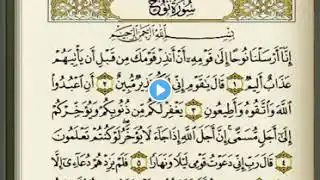 سُورَةُ نُوحٍ
بِسْمِ اللَّهِ الرَّحْمَٰنِ الرَّحِيمِ
إِنَّا أَرْسَلْنَا نُوحًا إِلَىٰ قَوْمِهِ أَنْ أَنذِرْ قَوْمَكَ مِن قَبْلِ أَن يَأْتِيَهُمْ
عَذَابٌ أَلِيمٌ ١ قَالَ يَٰقَوْمِ إِنِّي لَكُمْ نَذِيرٌ مُّبِينٌ ٢ أَنِ اعْبُدُوا
اللَّهَ وَاتَّقُوهُ وَأَطِيعُونِ ٣ يَغْفِرْ لَكُم مِّن ذُنُوبِكُمْ وَيُؤَخِّرْكُمْ
إِلَىٰ أَجَلٍ مُّسَمًّى إِنَّ أَجَلَ اللَّهِ إِذَا جَاءَ لَا يُؤَخَّرُ لَوْ كُنتُمْ تَعْلَمُونَ
٤ قَالَ رَبِّ إِنِّي دَعَوْتُ قَوْمِي لَيْلًا وَنَهَارًا ٥ فَلَمْ يَزِدْهُمْ دُعَاءِي إِلَّا